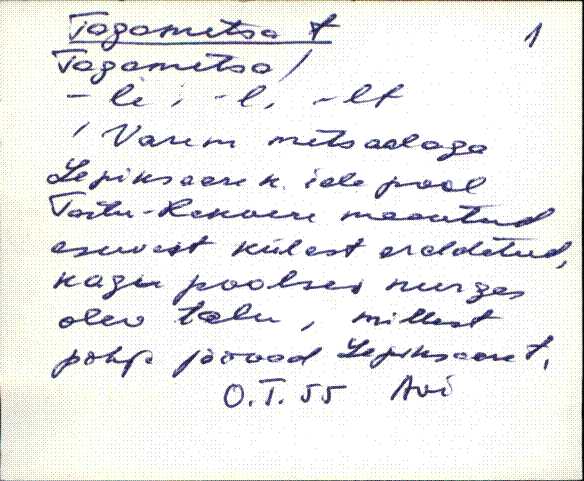 Tagametsa t 1
Tagametsa /
- le ; - l, - lt
/ Varem metsaalaga
Lepiksaare k. ida pool
Tartu-Räpina maantud
asuvast külast eraldatud,
kagu poolses nurges
olev talu, millest
põhja jäävad Lepiksaare t.
O.T. 55 Avi